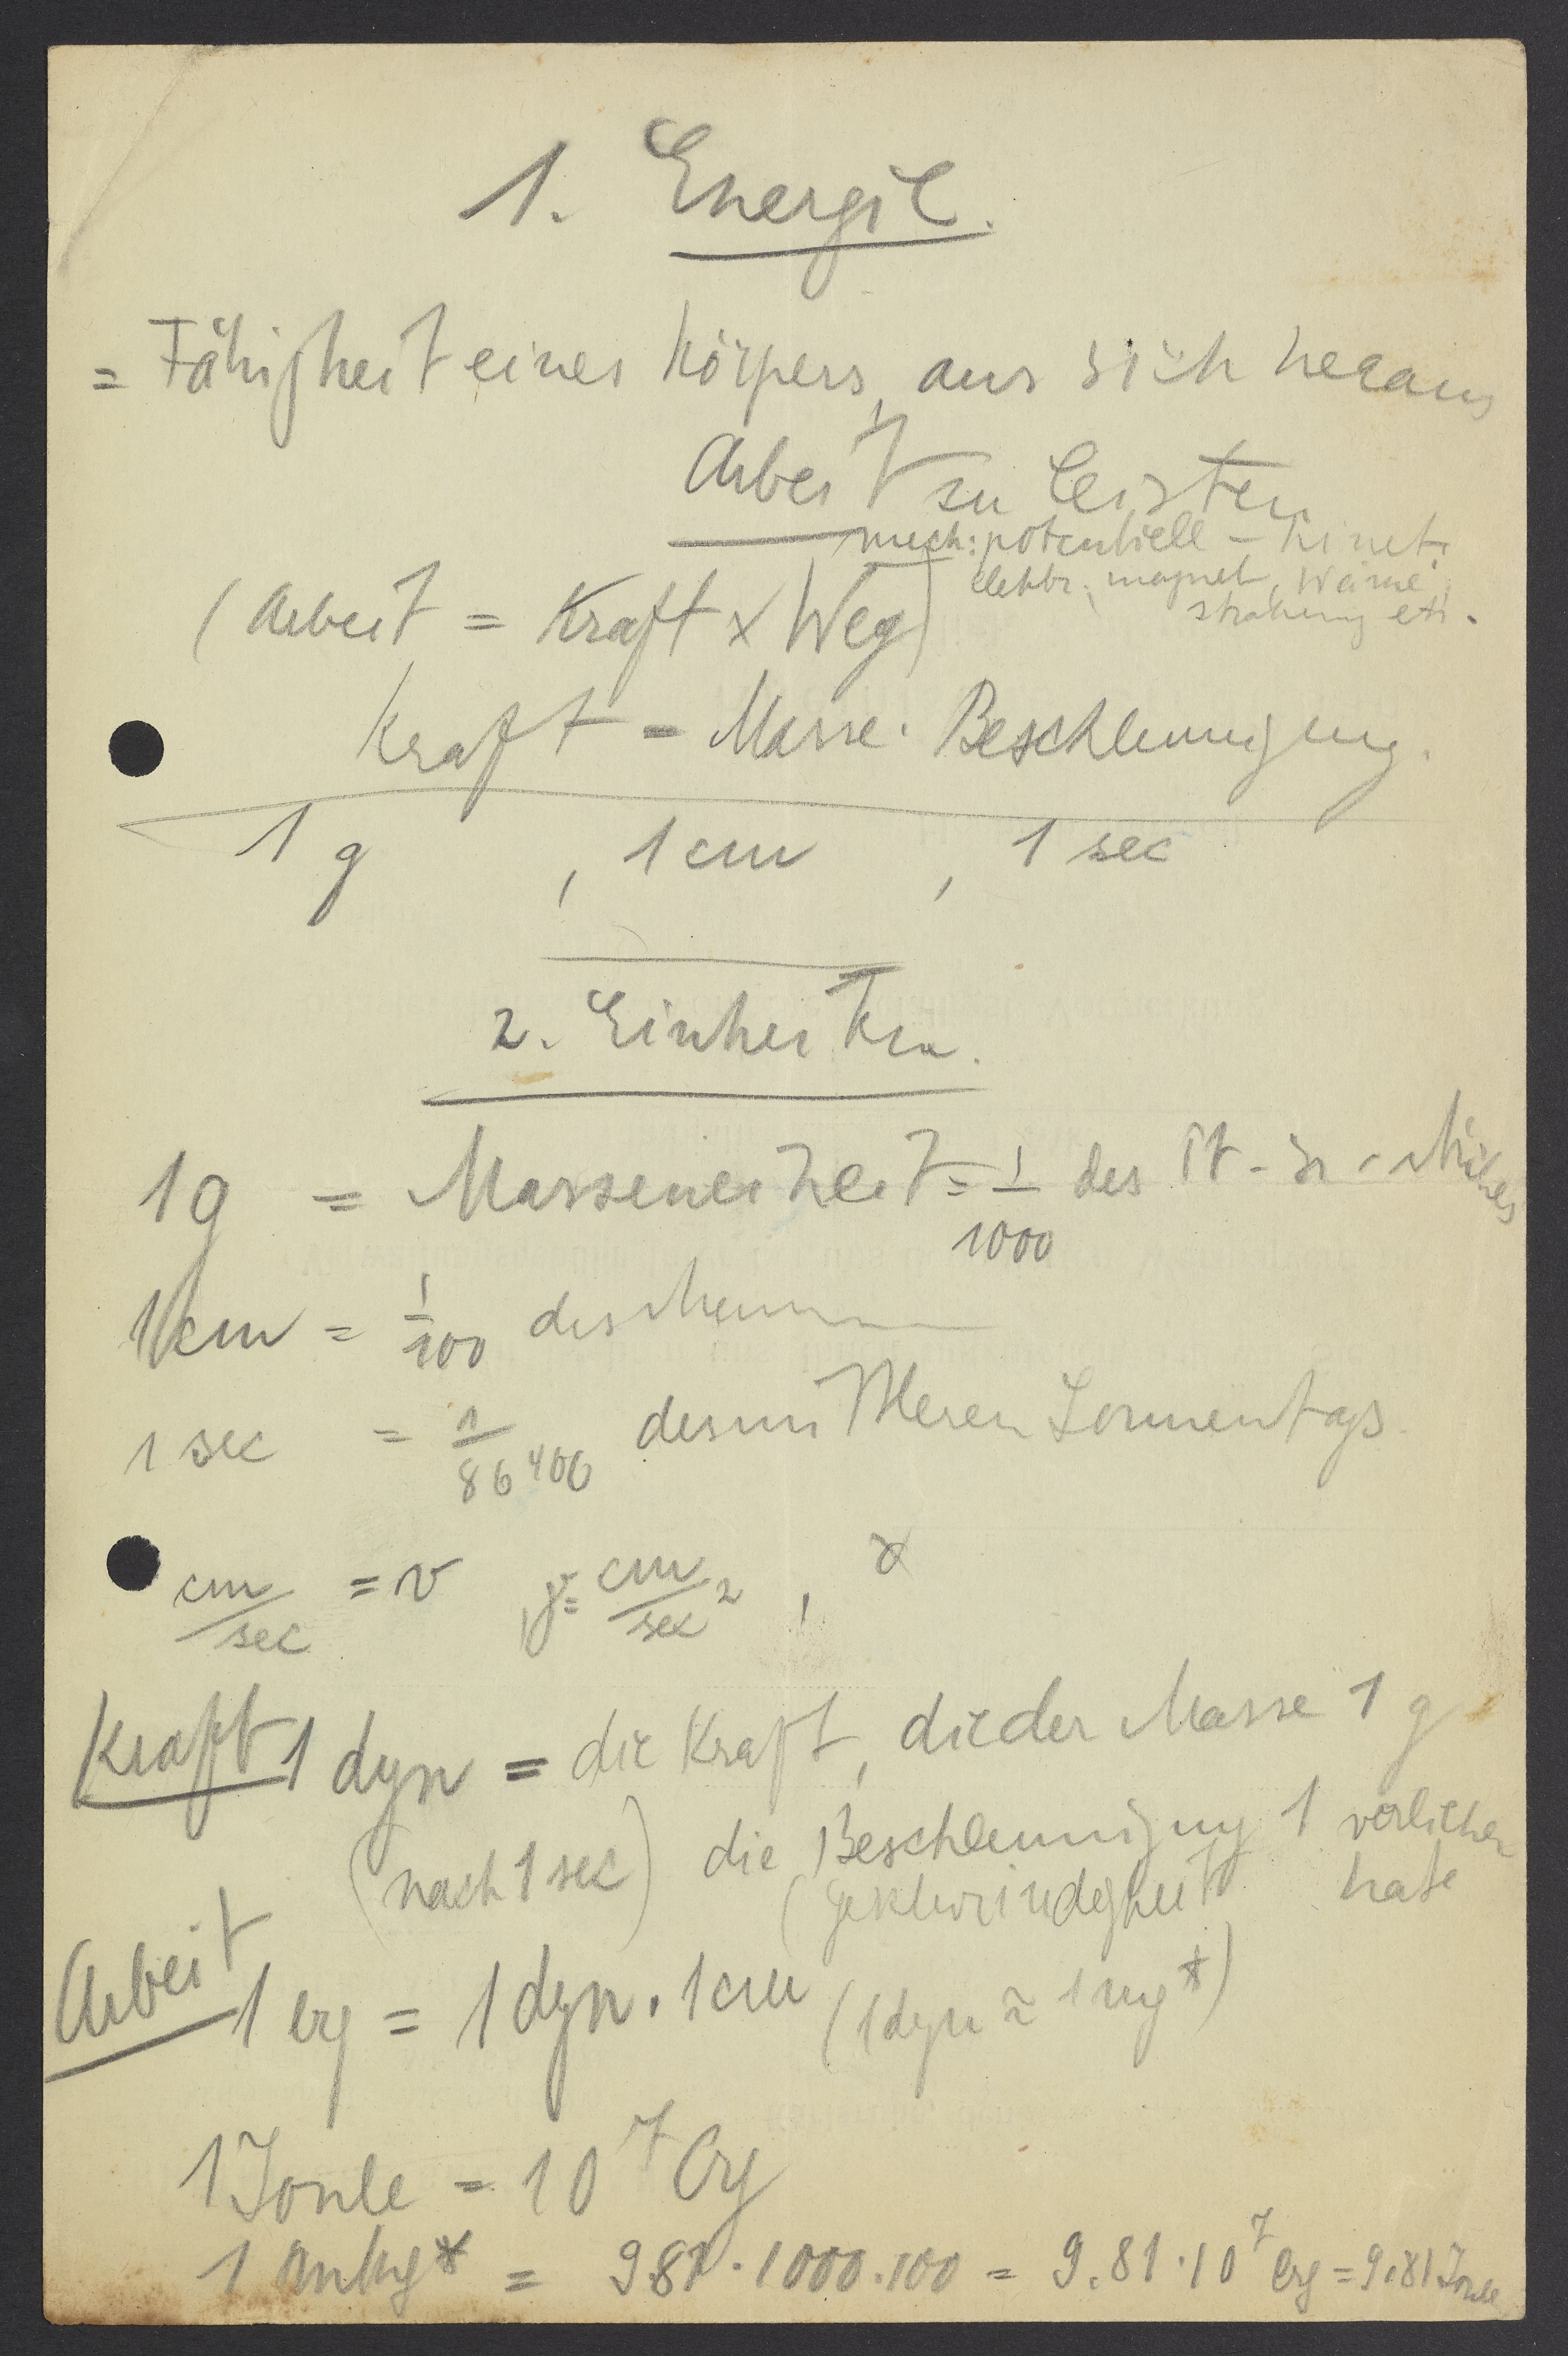 1. Energie.
= Fähigkeit eines Körpers, aus sich heraus
Arbeit zu leisten
mech: potentiell - kinet.
elektr., magnet, Wärme,
strahlung etc.
(Arbeit = Kraft x Weg)
Kraft = Masse · Beschleunigung.
1 g , 1 cm , 1 sec
2. Einheiten.
1 g = Masseneinheit = 1/1000 des
1 cm = 1/100 des
1 sec = 1/86400 des mittleren Sonnentags.
cm/sec = v , γ = cm/sec² ,
Kraft 1 dyn = die Kraft, die der Masse 1 g
(nach 1 sec) die Beschleunigung 1 verliehen
(Geschwindigkeit hat
Arbeit 1 erg = 1 dyn . 1 cm (1 dyn ≈ 1 mg*)
1 Joule = 10⁷ Erg
1 mkg* = 981 · 1000 · 100 = 9.81 · 10⁷ Erg = 9.81 Joule